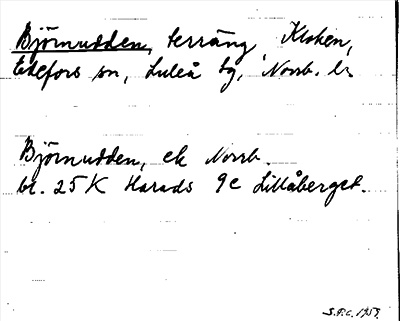 Björnudden, terräng Kloken,
Edefors sn, Luleå tg, Norrb. l.
Björnudden, ek Norrb.
bl. 25 K Harads 9c Lillåberget.
S.P.C. 1957.